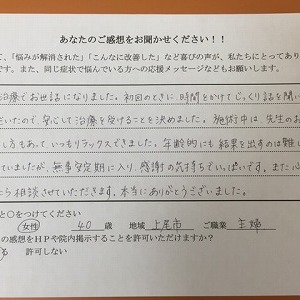 あなたのご感想をお聞かせください！！
て、「悩みが解消された」「こんなに改善した」など喜びの声が、私たちにとってあり
です。また、同じ症状で悩んでいる方への応援メッセージなどもお願いします。
治療でお世話になりました。初回のときに、時間をかけてじっくり話を聞い
だいたので、安心して治療を受けることを決めました。施術中は、先生のお
し方もあって、いつもリラックスできました。年齢的にも結果を出すのは難し
ていましたが、無事安定期に入り、感謝の気持ちでいっぱいです。また心
たら相談させていただきます。本当にありがとうございました。
と○をつけてください
女性 40 歳 地域 上尾市 ご職業 主婦
の感想をＨＰや院内掲示することを許可いただけますか？
許可しない